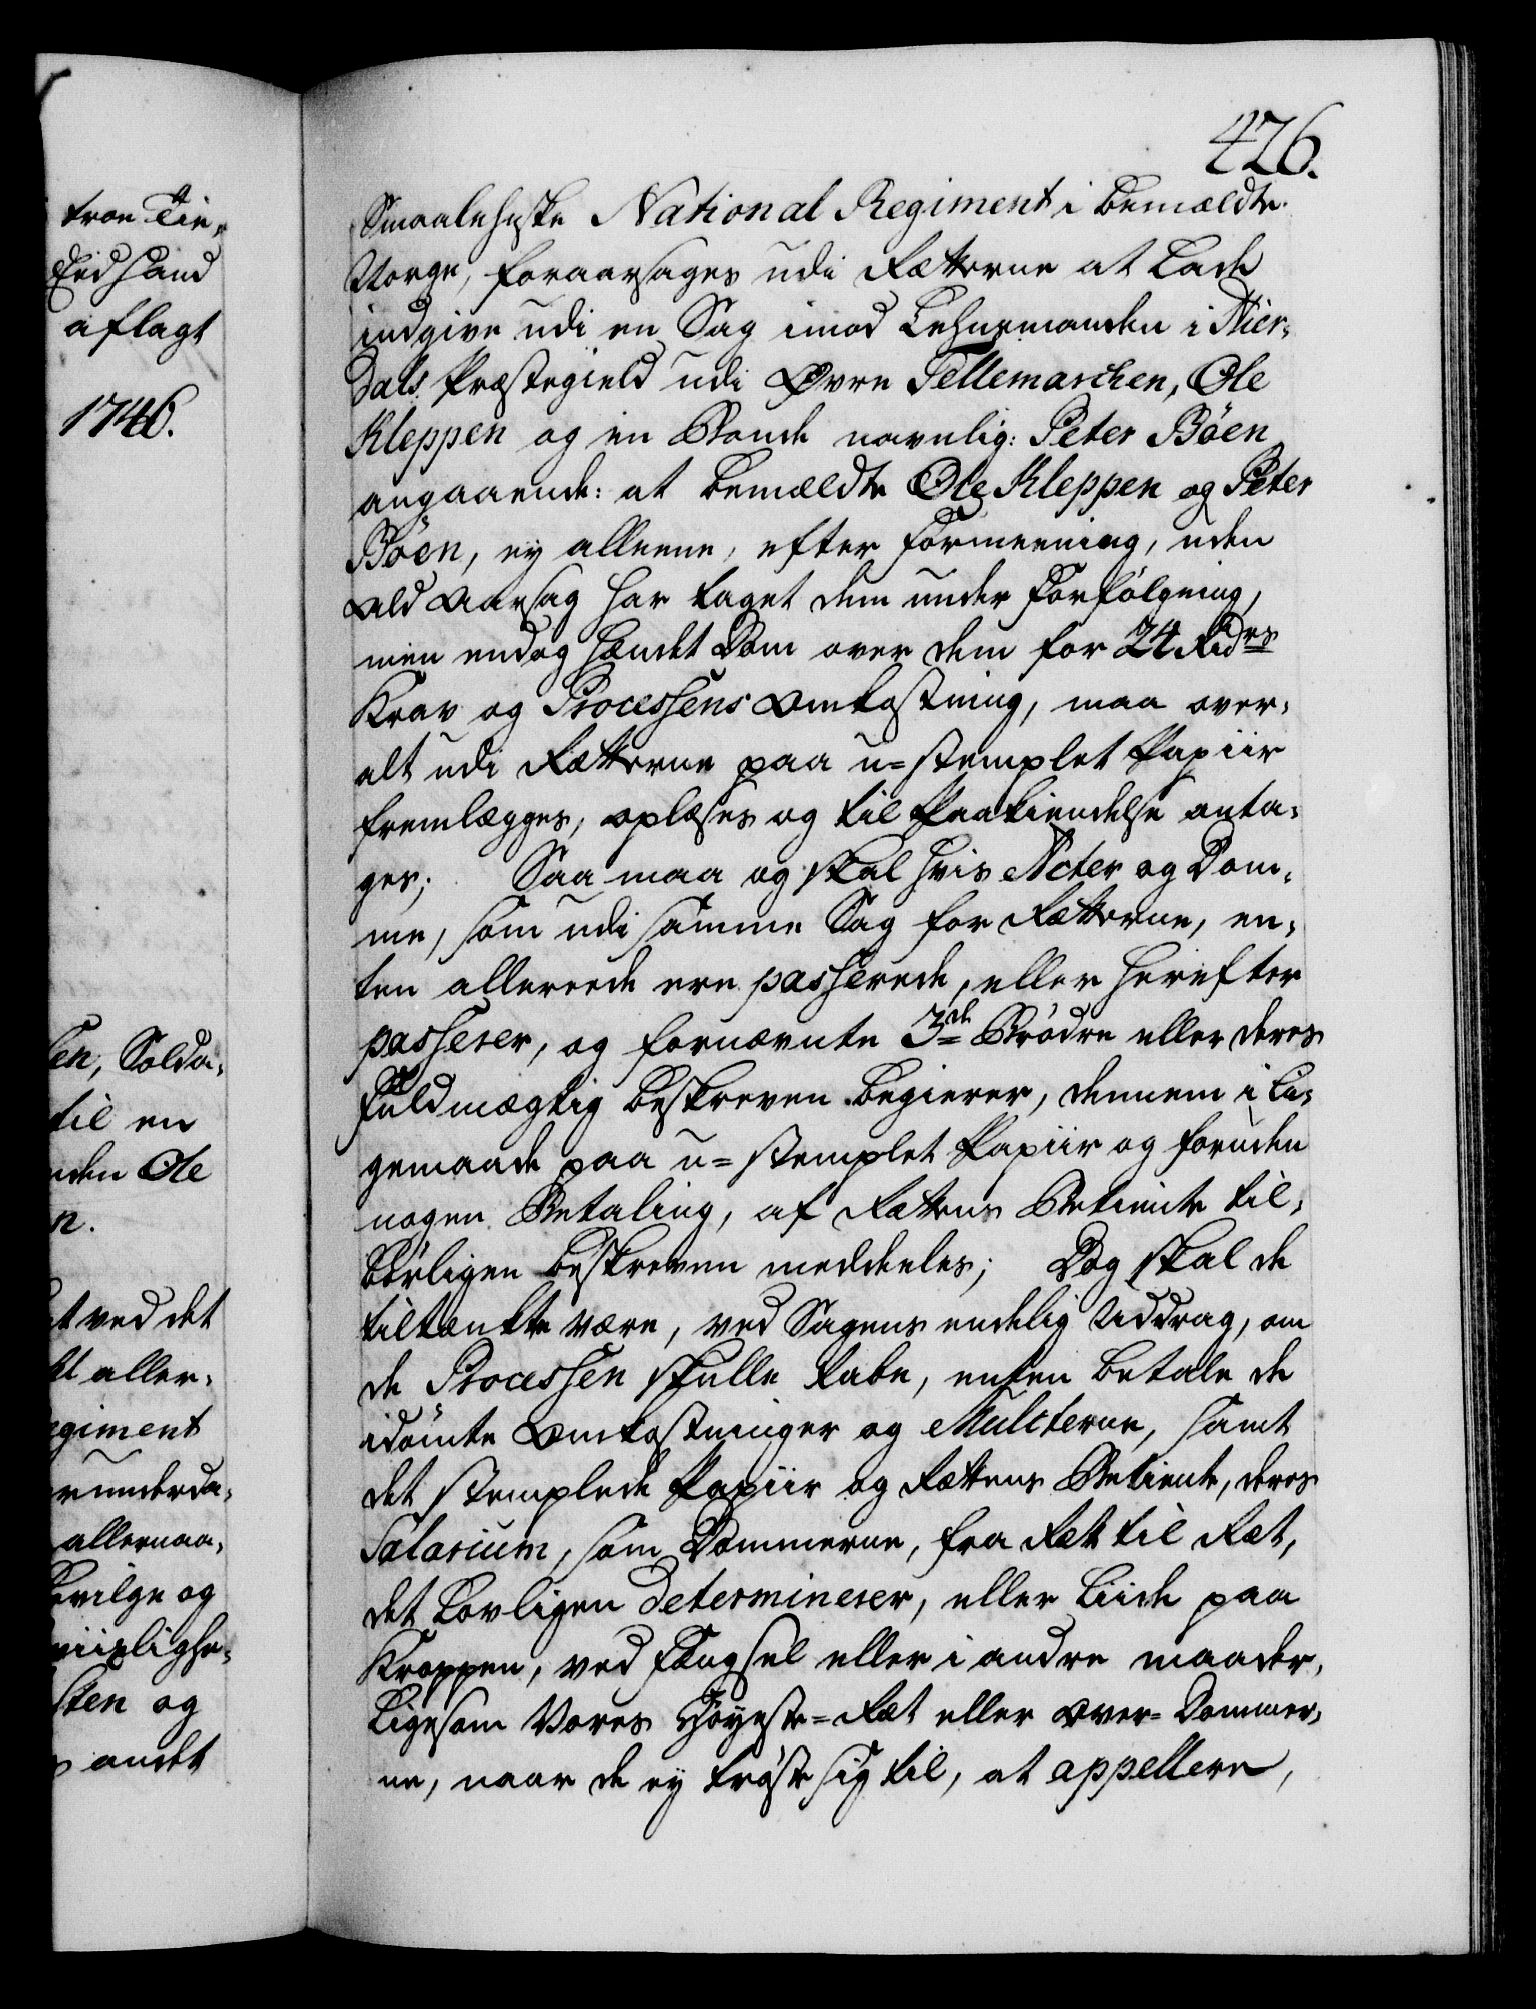 tron Tie,
Eed haud
aflagt
1746.
sen, Solda,
til en
nden Ole
n.
ved det
aller,
egiment
runderda,
allernaa,
bevilge og
sten og
andet
426.
Smaalehnske National Regiment i bemældte
Norge, foraarsages udi Rætterne at lade
indgive udi en Sag imod Lehnsmanden i Hier,
dals Præstegield udi Øvre Tellemarchen, Ole
Kleppen og en Bonde navnlig: Peter Böen
angaaende: at bemældte Ole Kleppen og Peter
Böen, ey alleene, efter Formeening, uden
ald Aarsag har taget dem under Forfølgning,
men endog hændet Dom over dem for 24 Rdrs
Krav og Processens Omkostning, maa over,
alt udi Rætterne paa u=stemplet Papiir
fremlægges, oplæses og til Paakiendelse anta,
ges; Saa maa og skal hvis Acter og Dom,
me, som udi samme Sag for Rætterne, en,
ten allereede ere passerede, eller herefter
passerer, og fornævnte 3de Brødre eller deres
Fuldmægtig beskreven begierer, dennem i li,
gemaade paa u=stemplet Papiir og foruden
nogen Betaling, af Rættens Betiente til,
børligen beskreven meddeeles; Dog skal de
tiltænkte være, ved Sagens endelig Uddrag, om
de Processen skulle tabe, enten betale de
idømte Omkostninger og Mulcterne, samt
det stemplede Papiir og Rættens Betiente, deres
Salarium, som Dommerne, fra Ret til Ræt,
det Lovligen determinerer, eller Liide paa
Kroppen, ved Fængsel eller i andre maader,
Ligesom Vores Høyeste=Ræt eller Over=Dommer,
ne, naar de ey trøste sig til, at appellere,